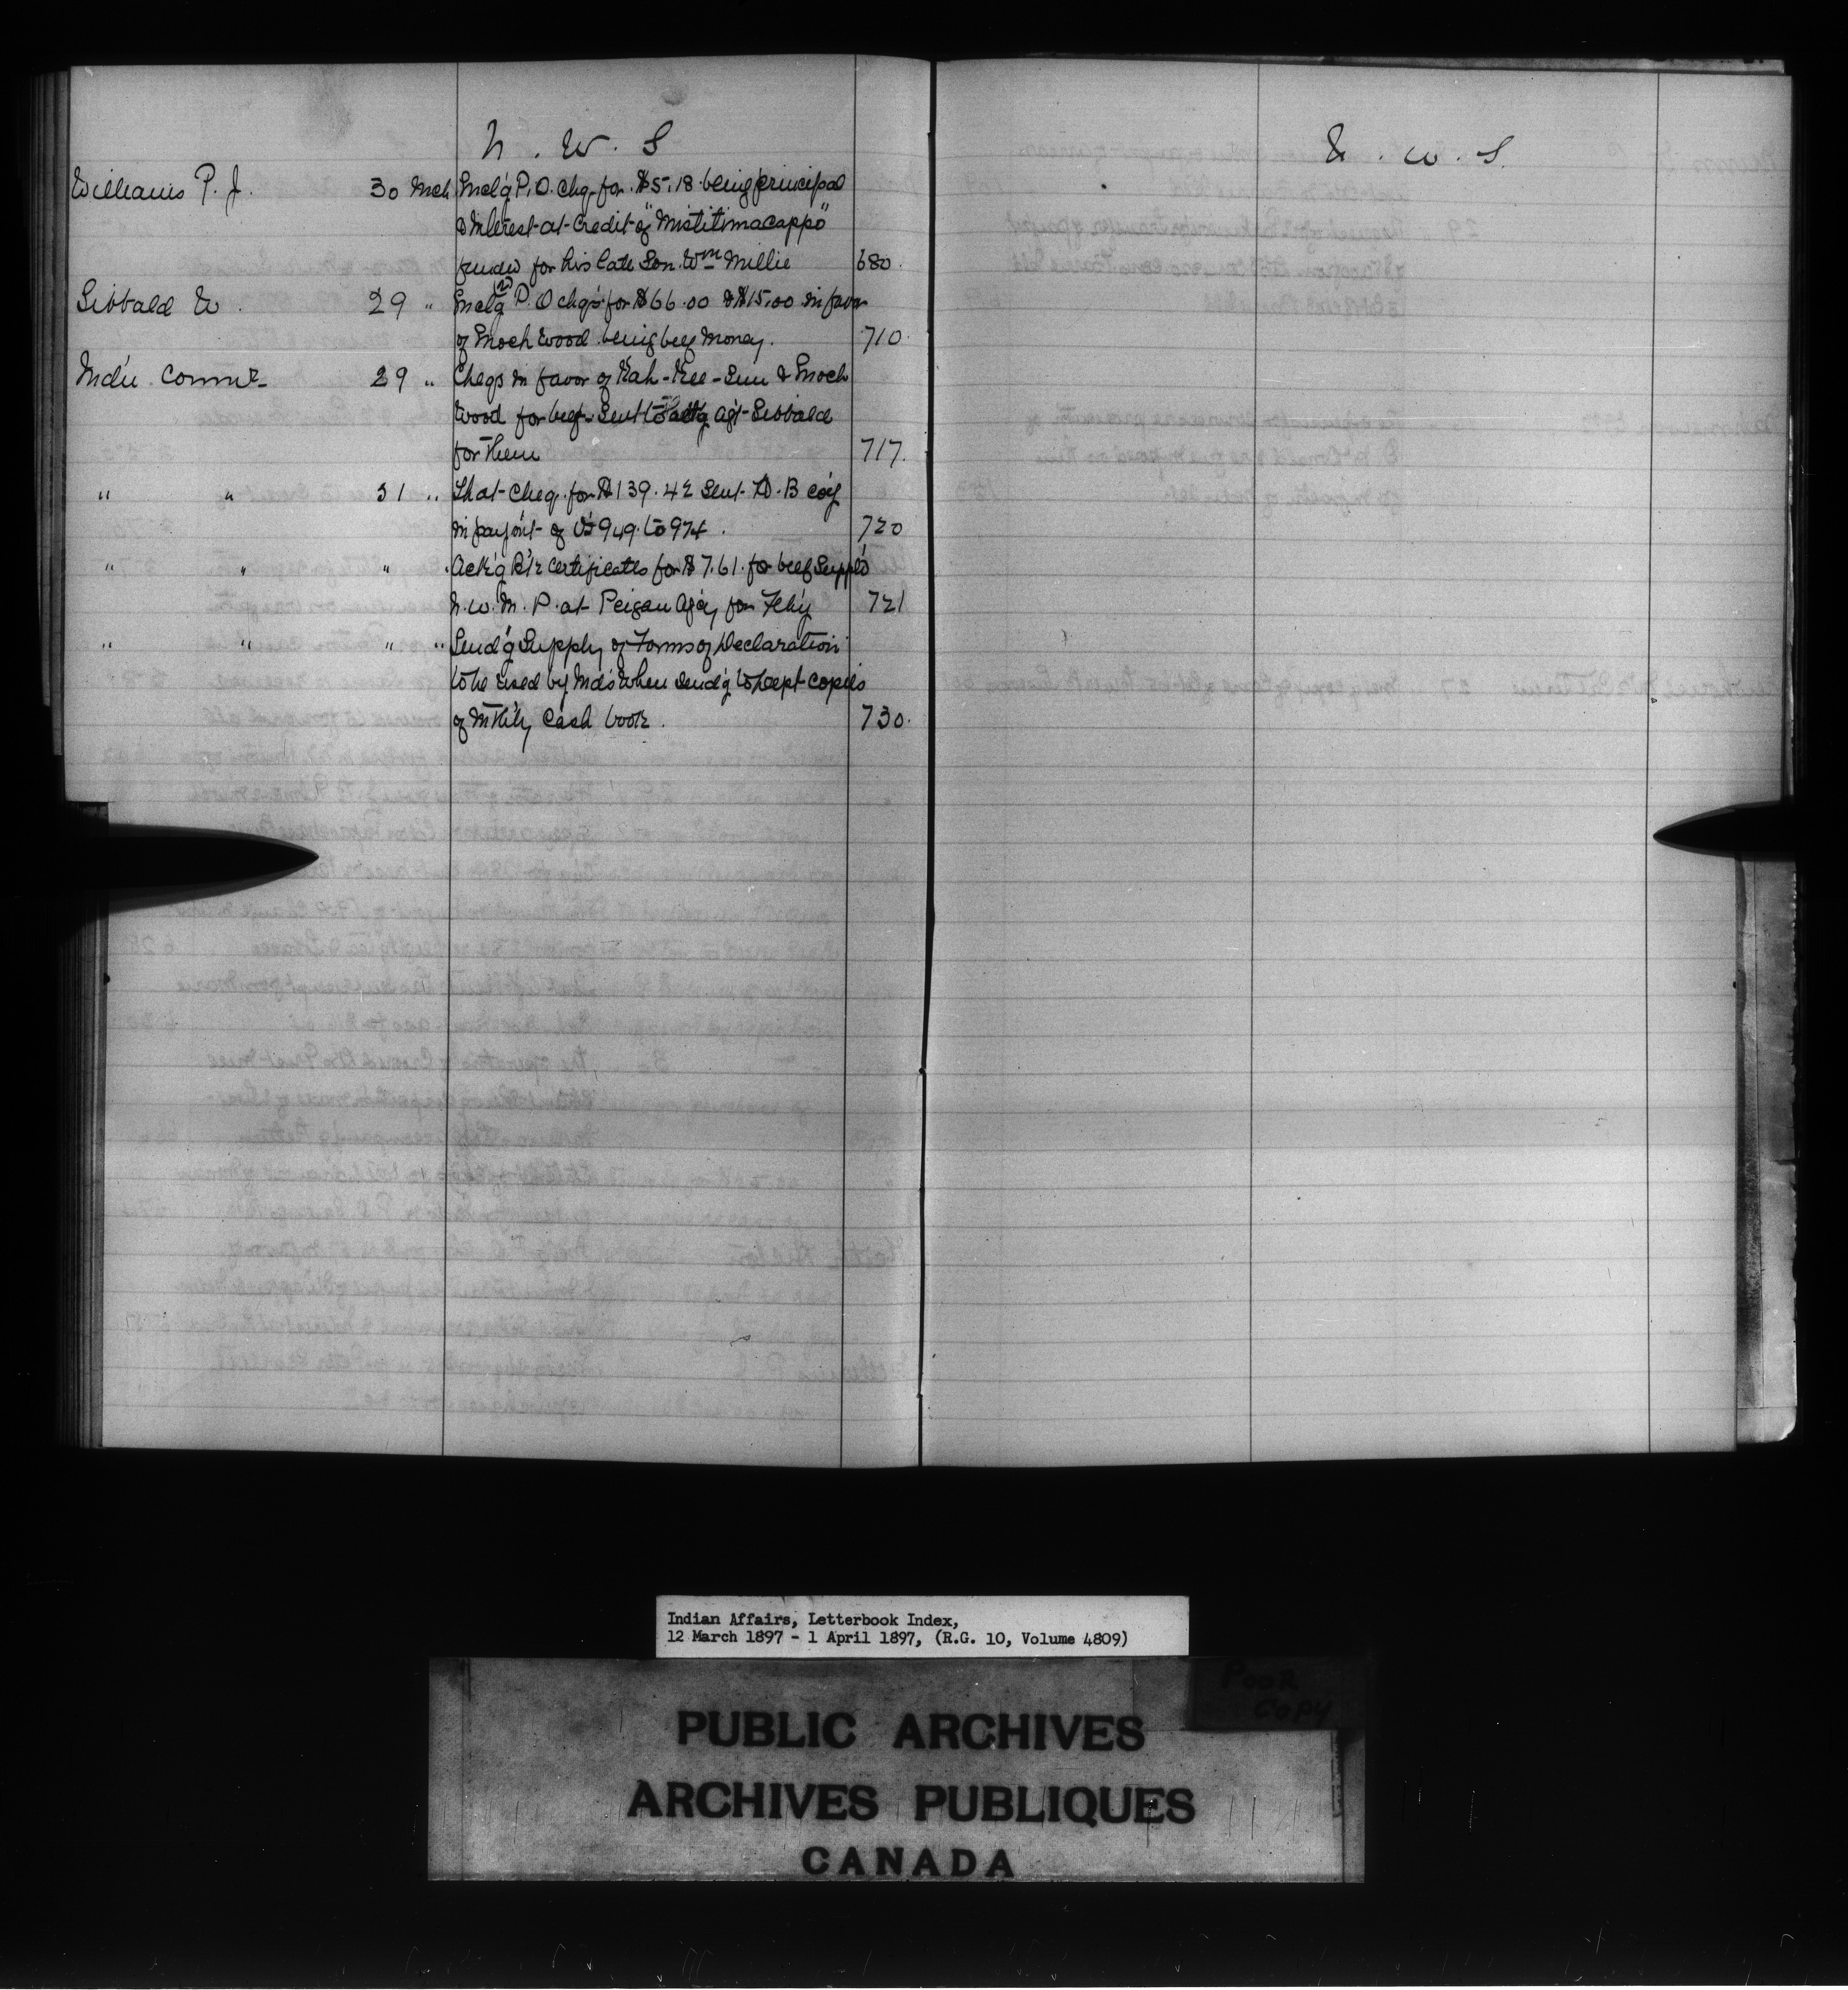 N. W. S
Williams P. J. 30 Mch Encl'g P.O. Chq. for $5.18 being principal
& Interest at Credit of "Mistitimacappo"
for his late Son Wm Millie 680.
Sibbald W. 29 " Encl'g (2) P.O chqs for $66.00 & $15.00 in favor
of Enoch Wood being beef money. 710.
Ind'n Commr 29 " Cheqs in favor of Kah-Kee- & Enoch
Wood for beef. Sent Agt Sibbald
for them 717.
" " 31 " That Cheq. for $139.42 Sent H. B Co'y
in paym't of Vs 949 to 974. 720
" " " " Ack'g certificates for $7.61. for beef Suppl'd
N. W. M. P. at Peigan Ag'cy for Feb'y 721
" " " " Send'g Supply of Forms of Declaration
to be used by Ind's when send'g to Dept copies
of Mthly Cash book. 730.
N. W. S.
Indian Affairs, Letterbook Index,
12 March 1897 - 1 April 1897, (R.G. 10, Volume 4809)
POOR
COPY
PUBLIC ARCHIVES
ARCHIVES PUBLIQUES
CANADA